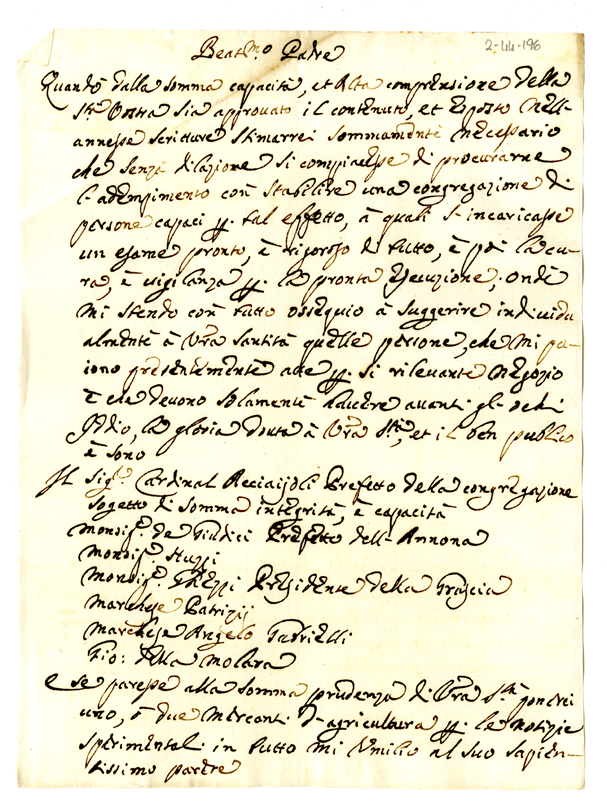 2-44-196
Beat.mo Padre
Quando dalla somma capacità, et Alta comprensione della
S.tà Vostra sia approvato il contenuto, et esposto nell-
annesse scritture stimarei sommamente necessario
che senza dilazione si compiacesse di procurarne
l'adempimento con stabilire una congregazione di
persone capaci p. tal effetto, à quali s'incaricasse
un esame pronto, è rigoroso di tutto, è poi la cu-
ra, è vigilanza p. la pronta esecuzione; onde
mi stendo con tutto ossequio à suggerire individu
almente à Vra Santità quelle persone, che mi pa-
iono presentemente atte p. si rilevante negozio
è che devono solamente havere avanti gli ochi
Iddio, la gloria dovuta à Vra S.tà, et il ben publico
è sono
Il Sig.r Cardinal Acciaijoli Prefetto della congregazione
sogetto di somma integrità, è capacità
Monsig.r de Giudici Prefetto dell'Annona
Monsig.r
Monsig.r Ghezzi Presidente della Grascia
Marchese Patrizij
Marchese Angelo Gabrielli
Gio: della Molara
e se paresse alla somma prudenza di Vra S.tà
uno, ò due Mercanti d'agricultura p. le notizie
sperimentali in tutto mi umilio al suo sapien-
tissimo parere